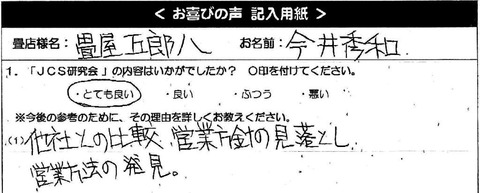 < お喜びの声 記入用紙 >
畳店様名: 畳屋五郎八 お名前: 今井秀和
1. 「JCS研究会」の内容はいかがでしたか? ○印を付けてください。
・とても良い ・良い ・ふつう ・悪い
※今後の参考のために、その理由を詳しくお教えください。
(1) 他社との比較、営業方針の見落とし
営業方法の発見。